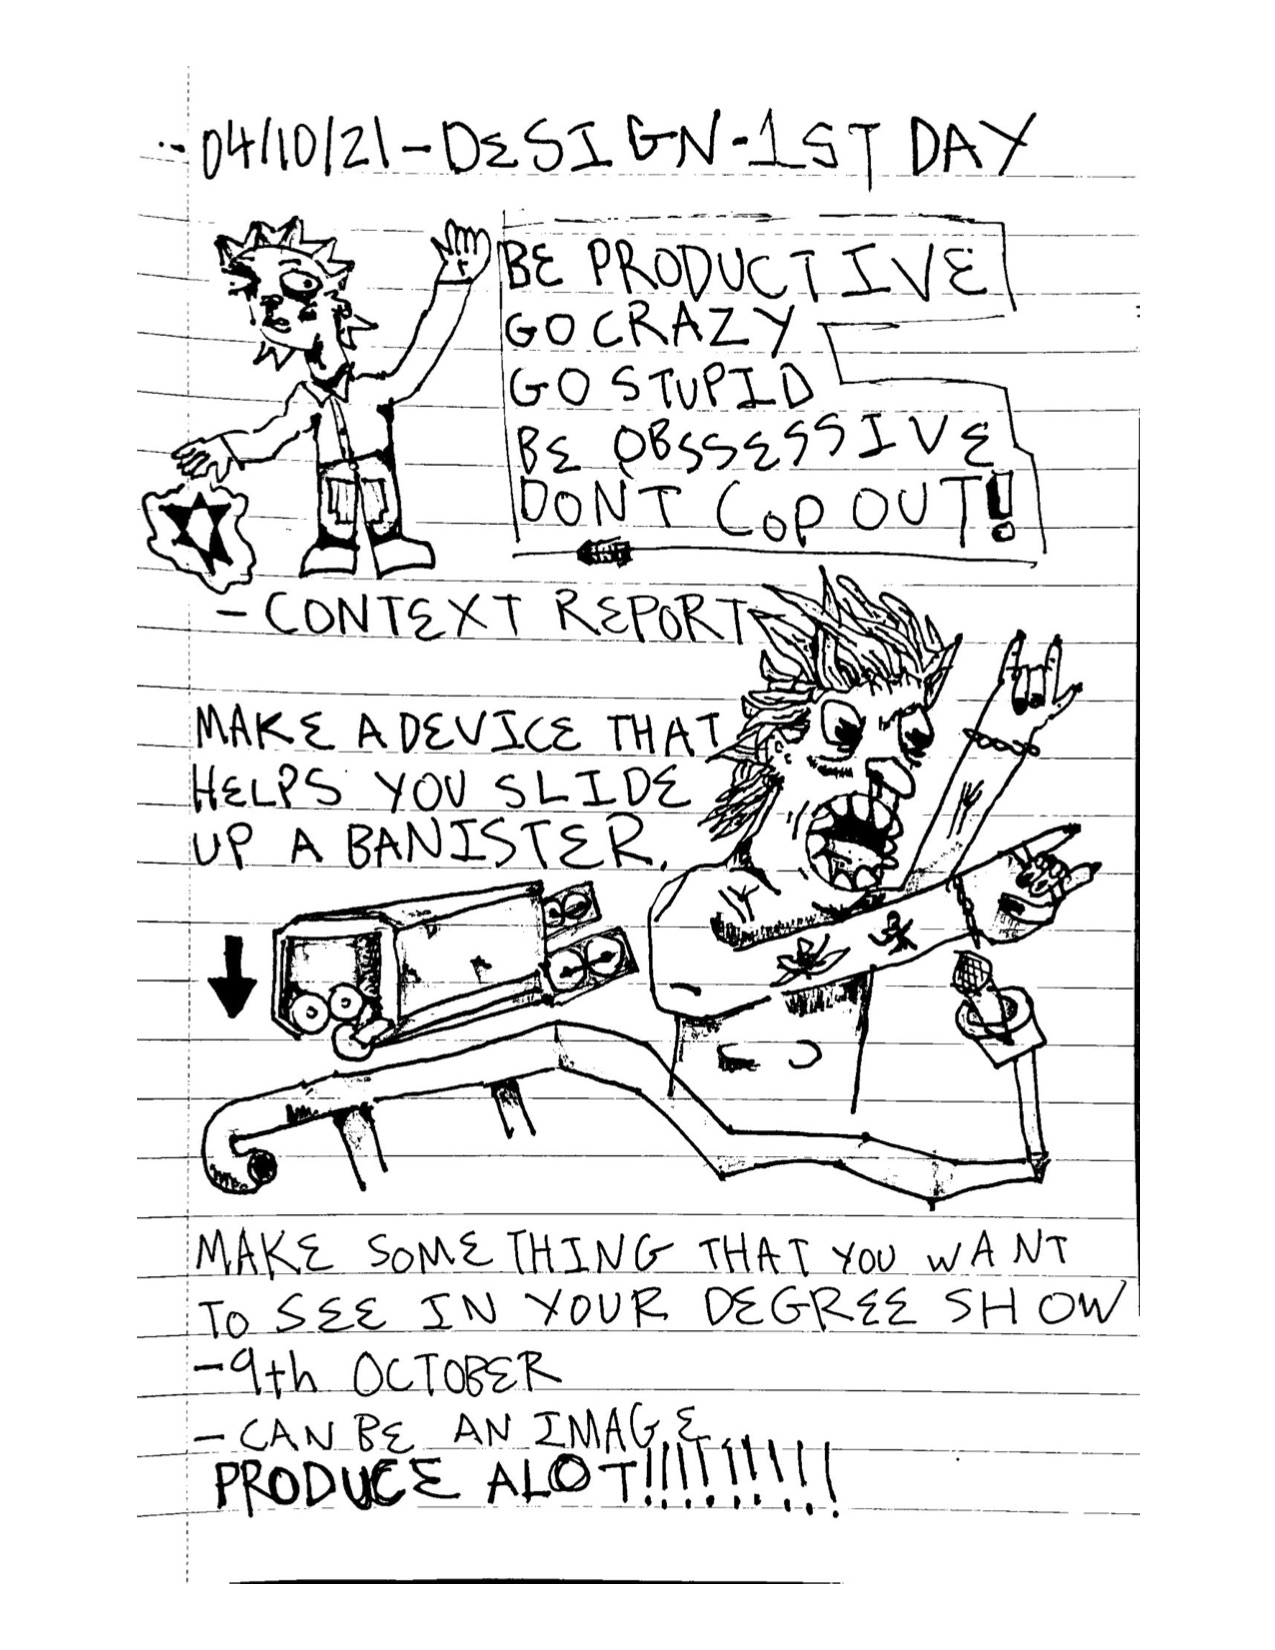 04/10/21-DESIGN-1ST DAY
BE PRODUCTIVE
GO CRAZY
GO STUPID
BE OBSSESSIVE
DONT COP OUT!
- CONTEXT REPORT
MAKE A DEVICE THAT
HELPS YOU SLIDE
UP A BANISTER.
MAKE SOMETHING THAT YOU WANT
TO SEE IN YOUR DEGREE SHOW
-9th OCTOBER
- CAN BE AN IMAGE
PRODUCE ALOT!!!!!!!!!!